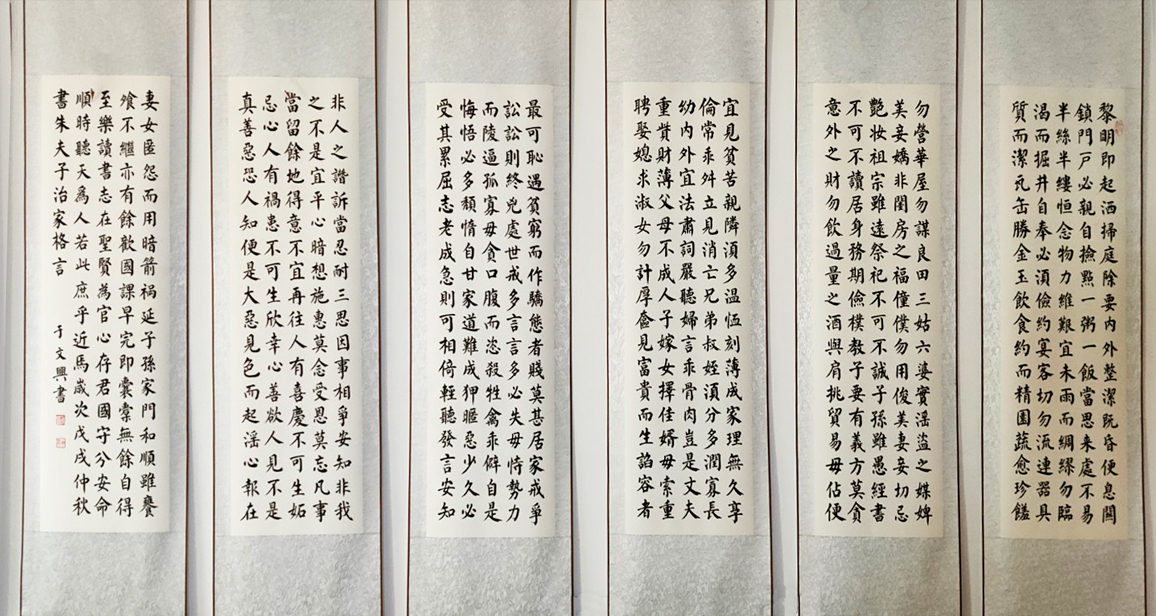 黎明即起洒掃庭除要内外整潔既昏便息關
鎖門戶必親自撿點一粥一飯當思来處不易
半絲半縷恒念物力維艱宜未雨而綢繆勿臨
渴而掘井自奉必湏儉約宴客切勿流連器具
質而潔瓦缶勝金玉飲食約而精園蔬愈珍饈
勿營華屋勿謀良田三姑六婆實滛盗之媒婢
美妾嬌非閨房之福僮僕勿用俊美妻妾切忌
艶妝祖宗雖遠祭祀不可不誠子孫雖愚經書
不可不讀居身務期儉樸教子要有義方莫貪
意外之財勿飲過量之酒與肩挑貿易毋佔便
宜見貧苦親隣湏多温恤刻薄成家理無久享
倫常乖舛立見消亡兄弟叔姪湏分多潤寡長
幼内外宜法肅詞嚴聽婦言乖骨肉豈是丈夫
重貲財薄父母不成人子嫁女擇佳婿毋索重
聘娶媳求淑女勿計厚奩見富貴而生諂容者
最可恥遇貧窮而作驕態者賤莫甚居家戒爭
訟訟則終兇處世戒多言言多必失毋恃勢力
而陵逼孤寡毋貪口腹而恣殺牲禽乖僻自是
悔悟必多頽惰自甘家道難成狎暱惡少久必
受其累屈志老成急則可相倚輕聽發言安知
非人之譖訴當忍耐三思因事相爭安知非我
之不是宜平心暗想施惠莫念受恩莫忘凡事
當留餘地得意不宜再往人有喜慶不可生妬
忌心人有禍患不可生欣幸心善欲人見不是
真善惡恐人知便是大惡見色而起滛心報在
妻女匿怨而用暗箭禍延子孫家門和順雖饔
飧不繼亦有餘歡國課早完即囊橐無餘自得
至樂讀書志在聖賢為官心存君國守分安命
順時聽天為人若此庶乎近焉歲次戊戌仲秋
書朱夫子治家格言
于文興書